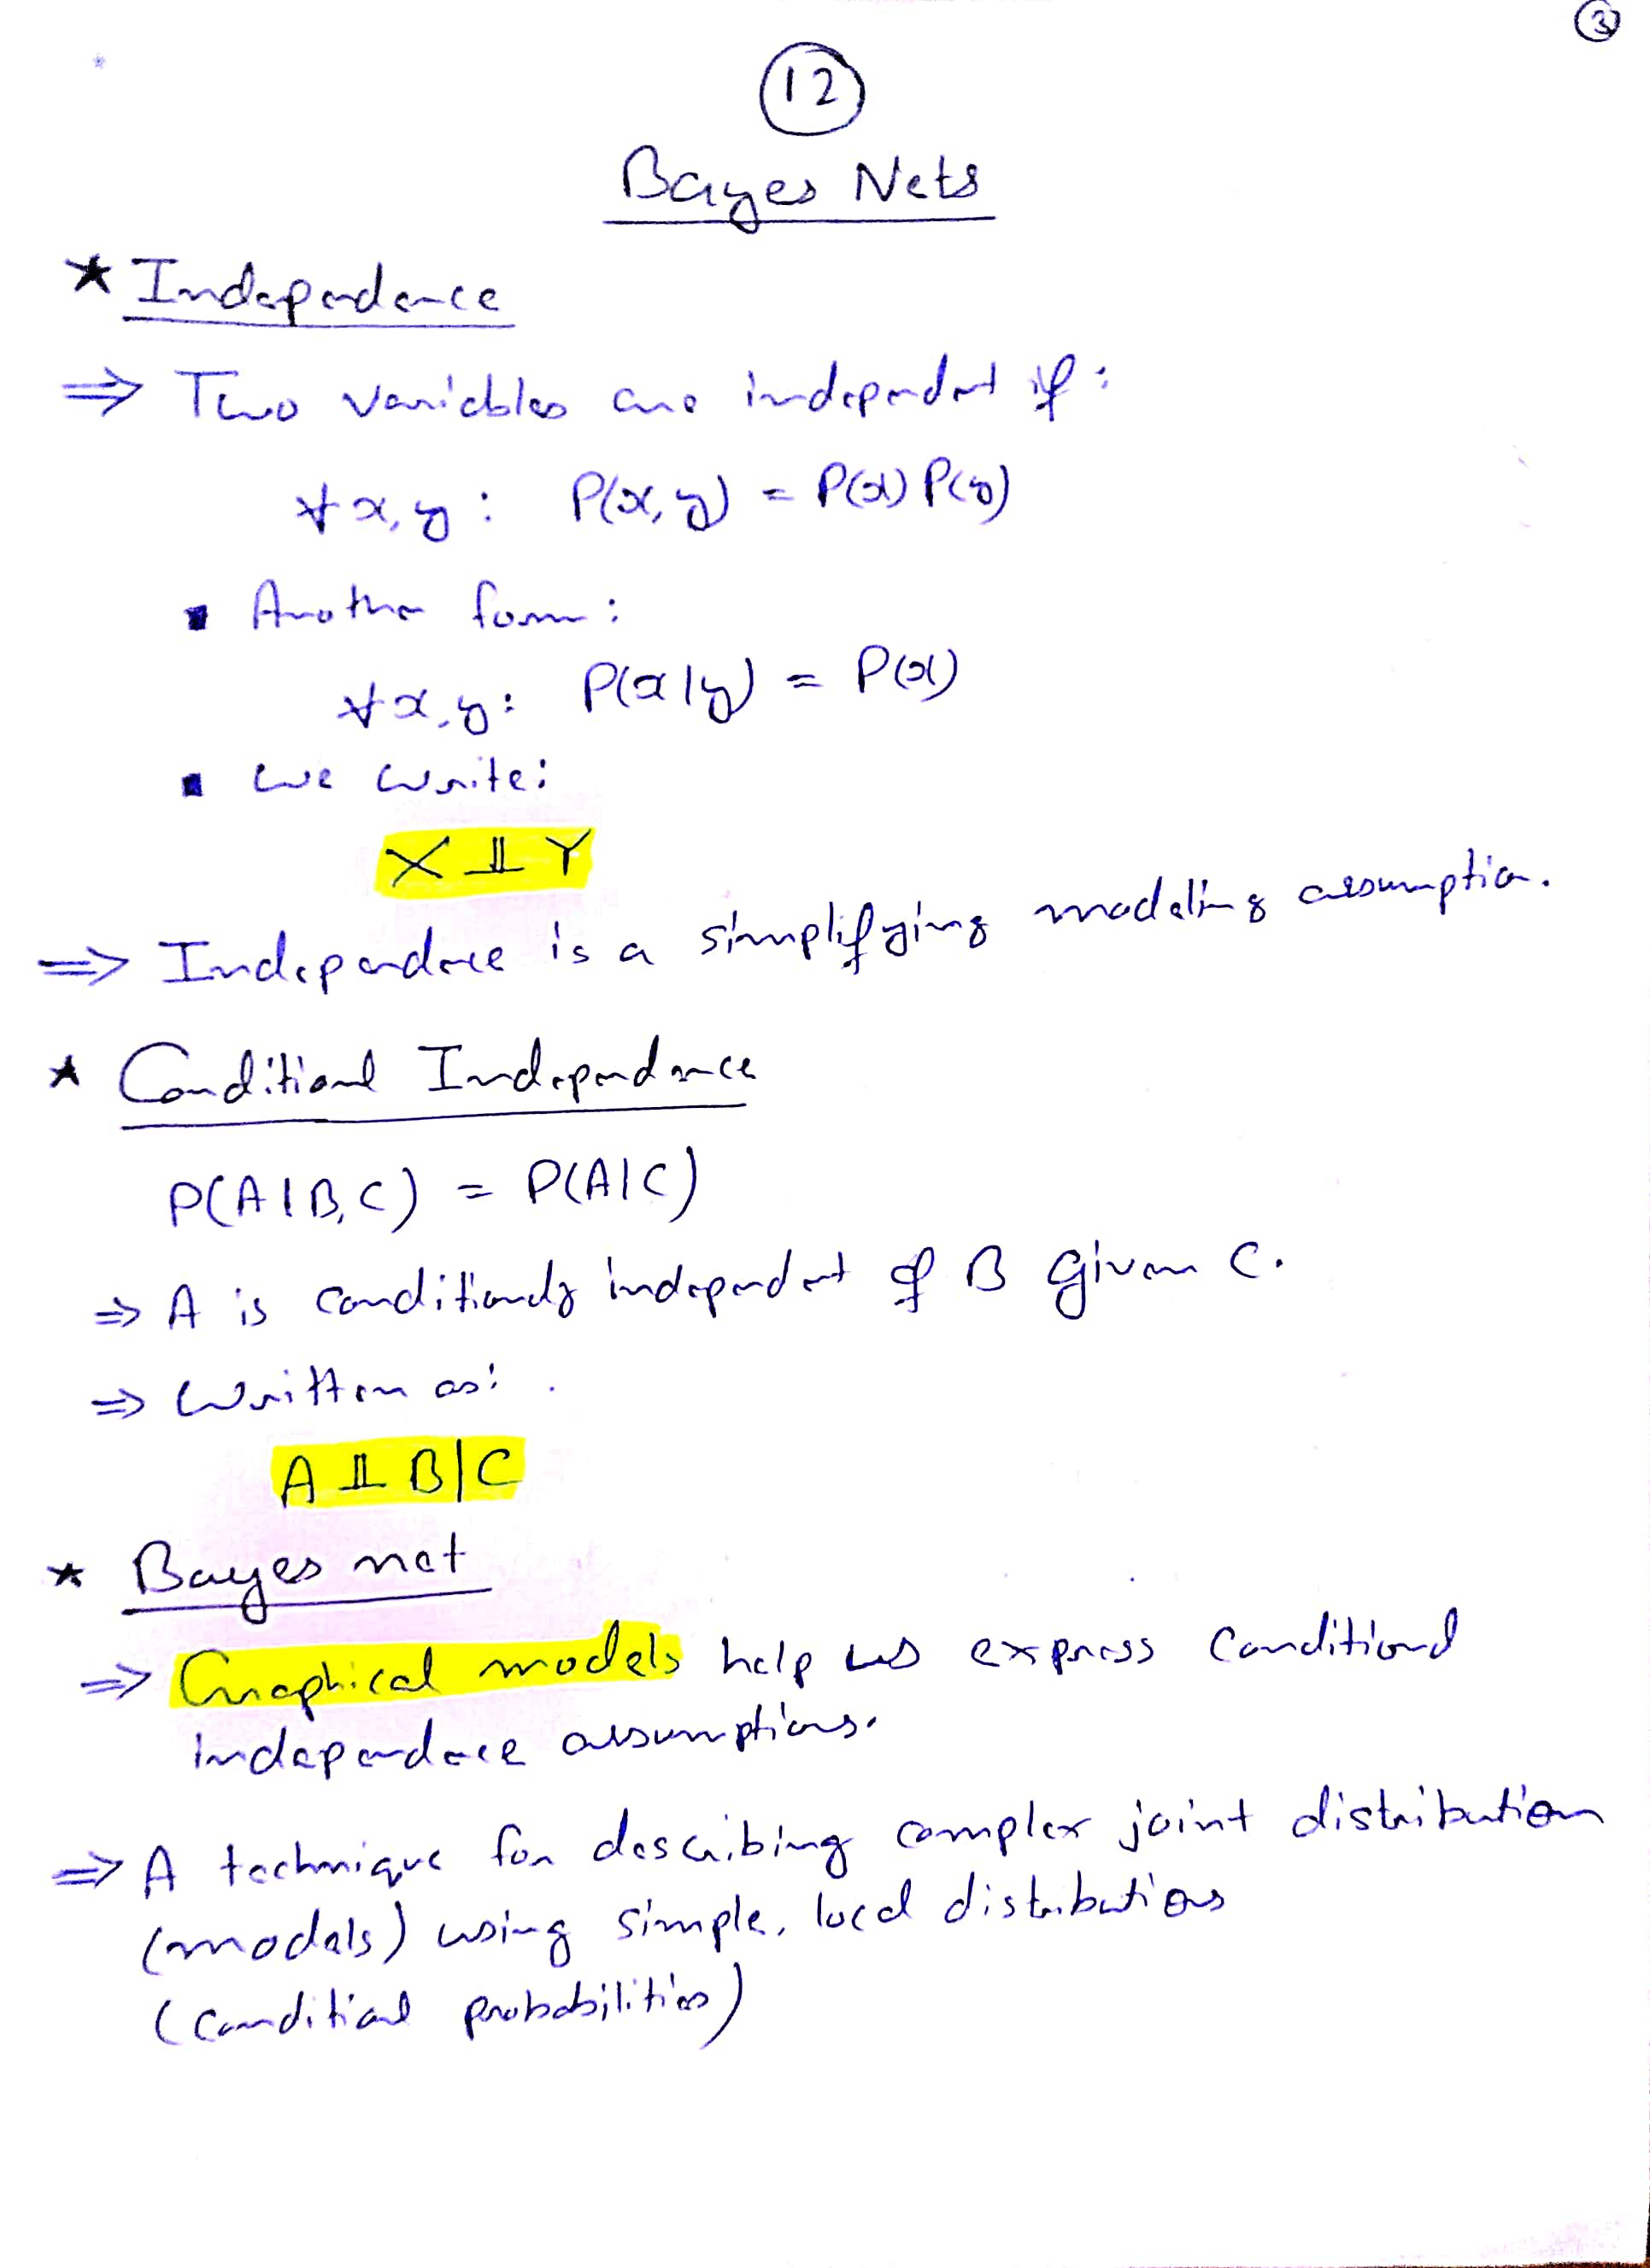 3
12
Bayes Nets
★ Independence
⇒ Two variables are independent if:
∀x,y: P(x,y) = P(x) P(y)
▪ Another form:
∀x,y: P(x|y) = P(x)
▪ We write:
X ⫫ Y
⇒ Independence is a simplifying modeling assumption.
★ Conditional Independence
P(A|B,C) = P(A|C)
⇒ A is conditionally independent of B given C.
⇒ Written as:
A ⫫ B|C
★ Bayes net
⇒ Graphical models help us express conditional
independence assumptions.
⇒ A technique for describing complex joint distribution
(models) using simple, local distributions
(conditional probabilities)